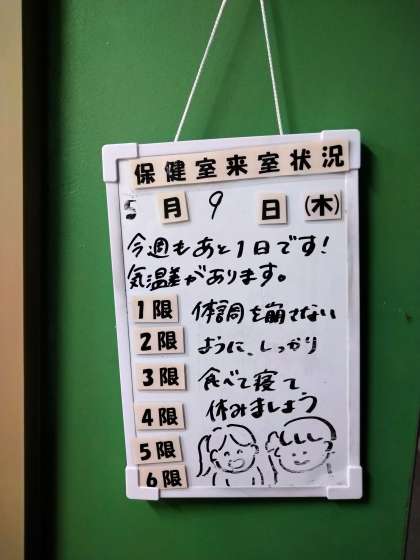 保健室来室状況
5月9日(木)
今週もあと1日です!
気温差があります。
1限 体調を崩せない
2限 ように、しっかり
3限 食べて寝て
4限 休みましょう
5限
6限